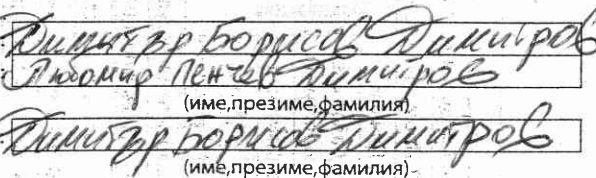 Димитър Борисов Димитров
Любомир Пенчев Димитров
(име,презиме,фамилия)
Димитър Борисов Димитров
(име,презиме,фамилия)